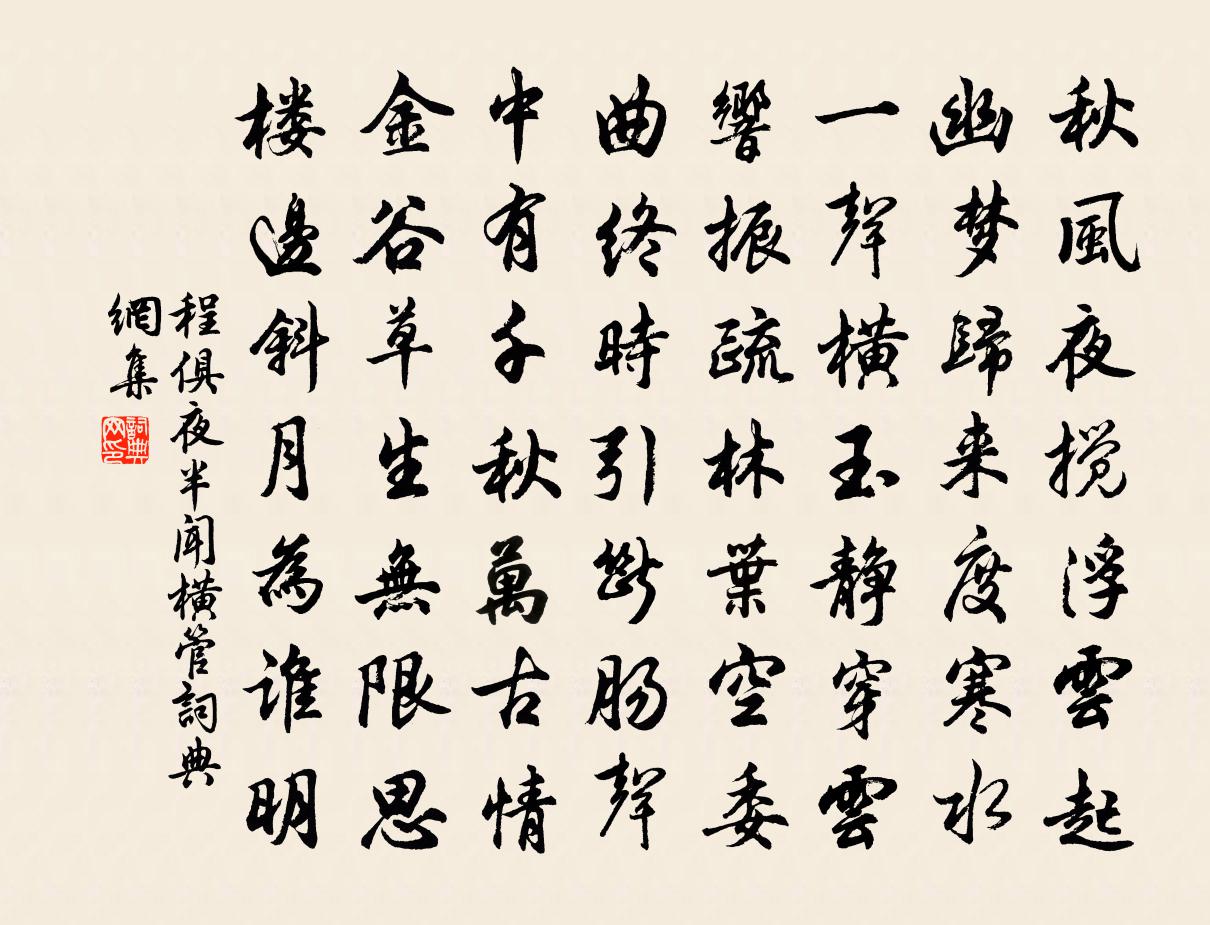 秋風夜搅浮雲起
幽梦歸来度寒水
一聲橫玉静穿雲
響振疏林葉空委
曲终時引断肠聲
中有千秋萬古情
金谷草生無限思
楼邊斜月為谁明
程俱夜半聞橫管詞典
網集
詞典网印